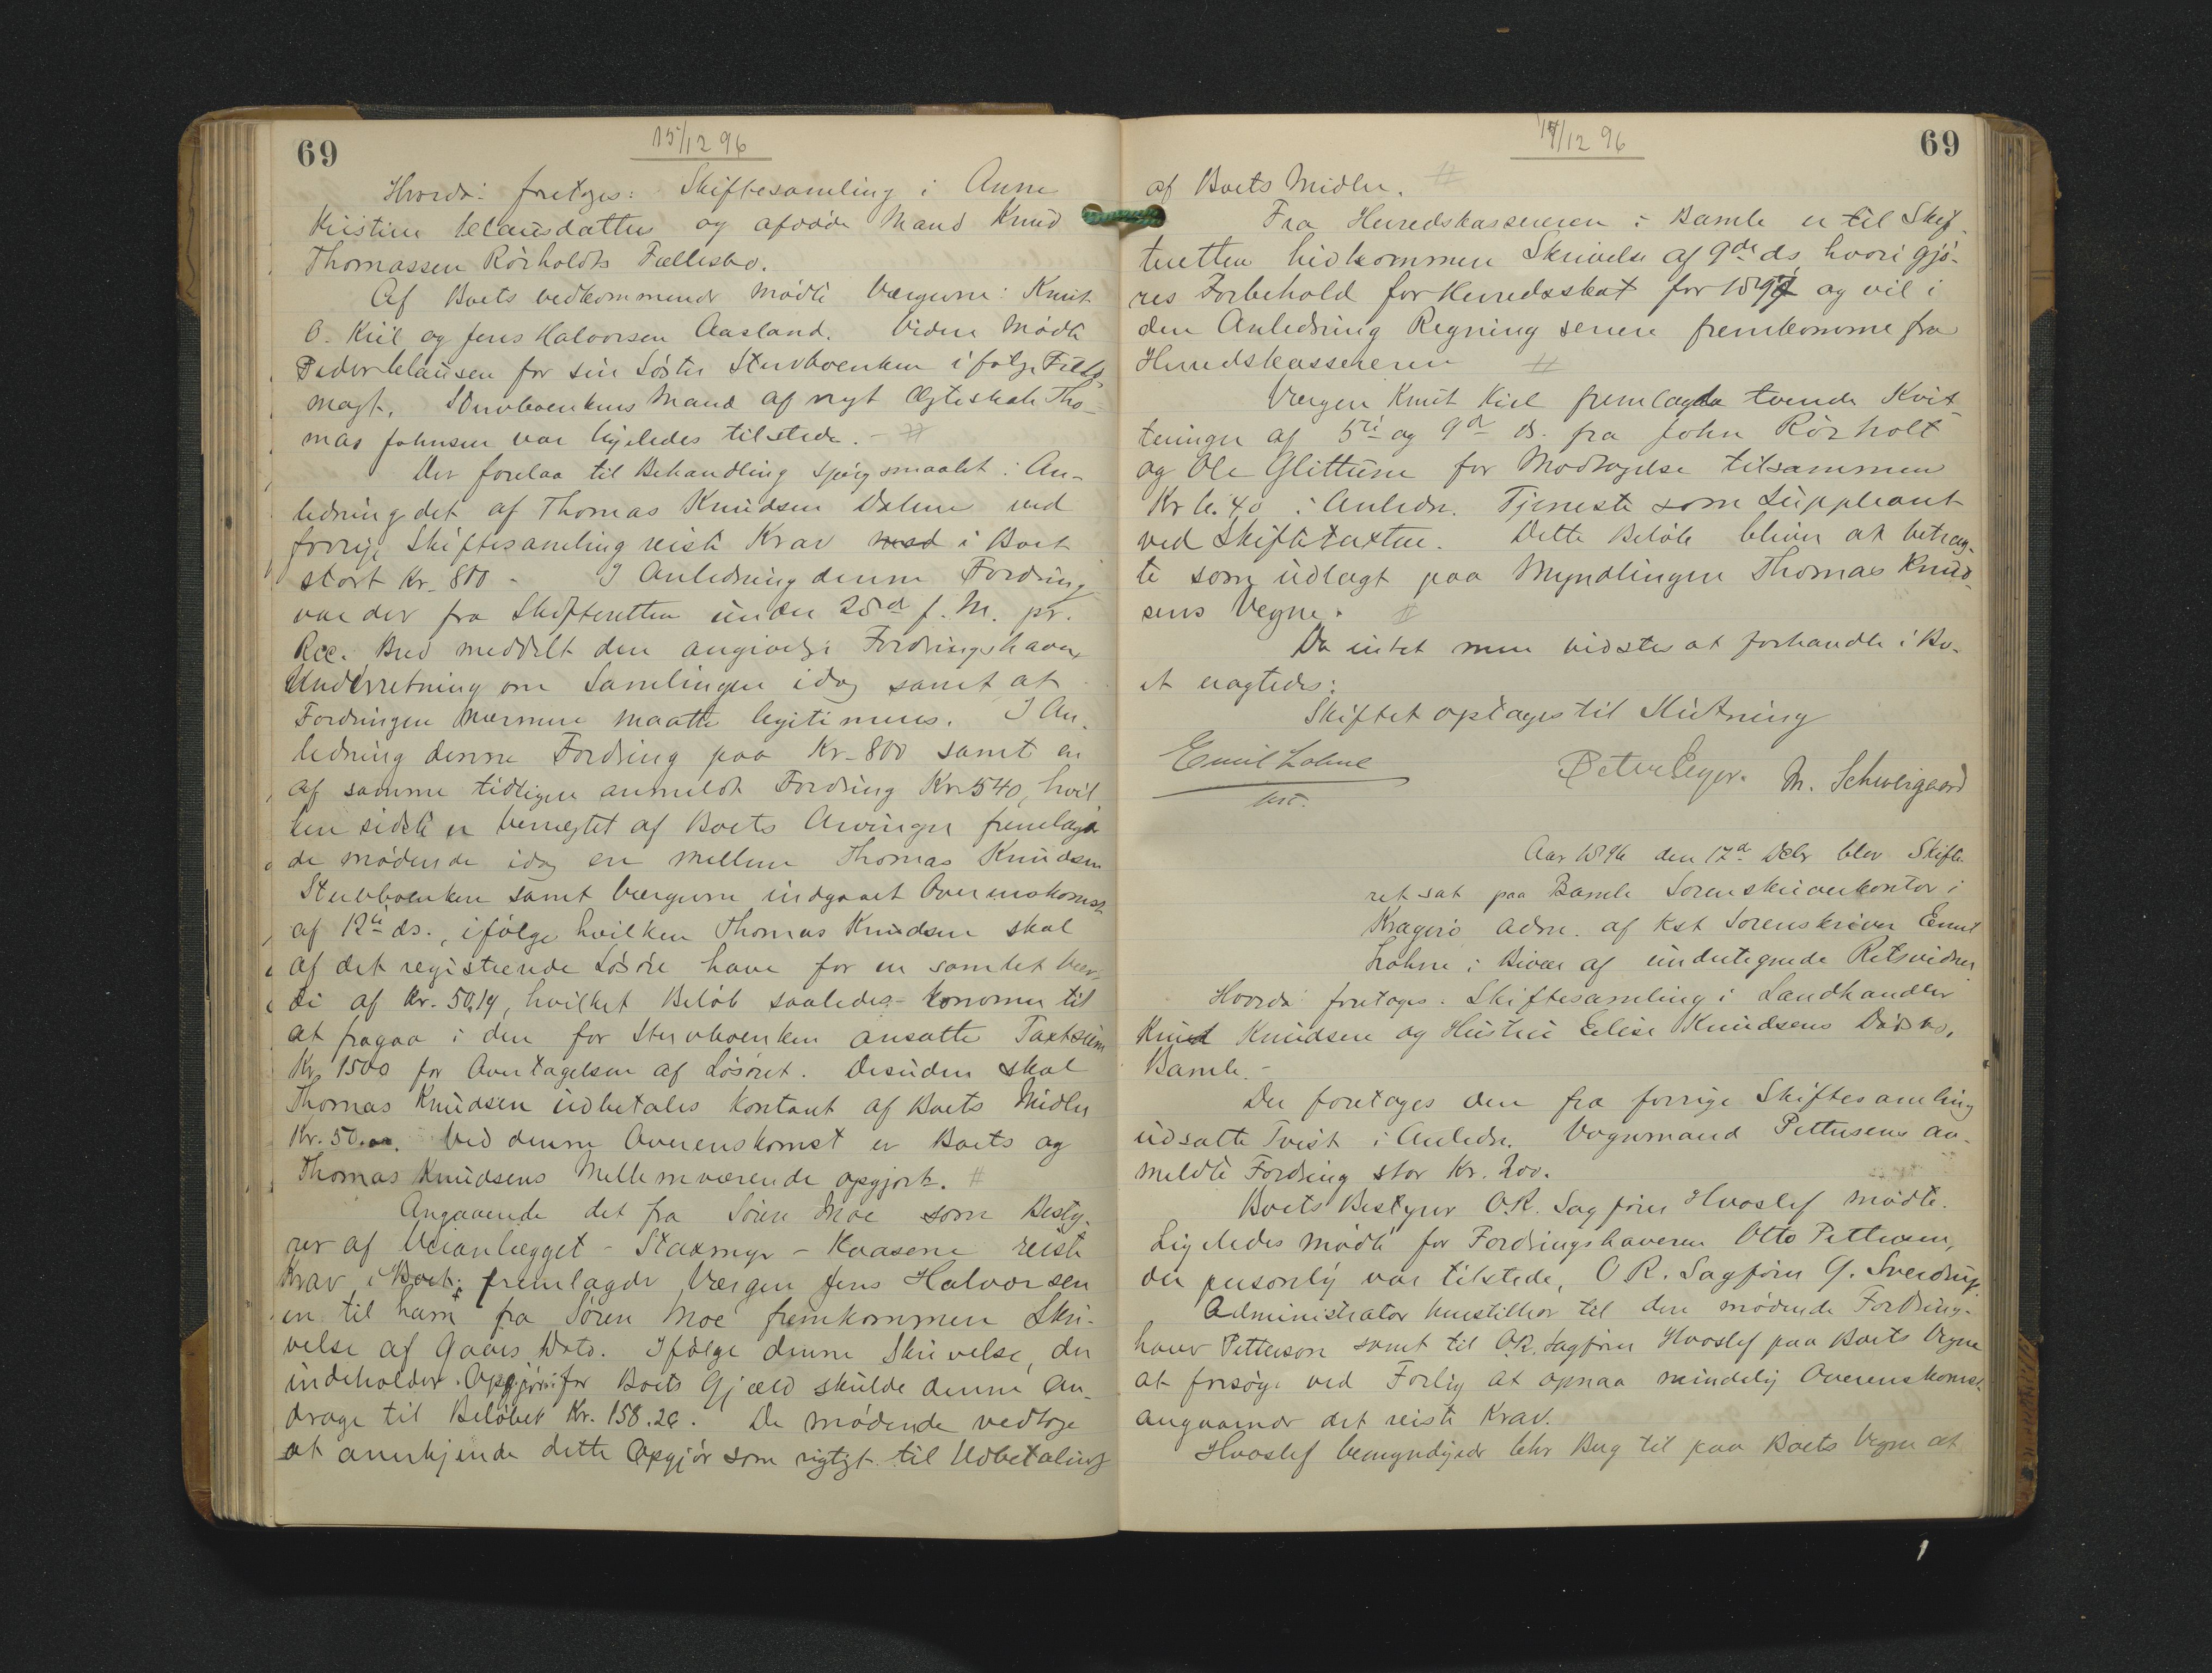 69
15/12 96
Hvorda: foretoges: Skiftesamling i Anne
Kistine Clausdatter og afdøde Mand Knud
Thomassen Rörholdts Fællesbo.
Af Boets vedkommende mødte Værgerne: Knut
O. Kiil og Jens Halvorsen Aasland. Videre mødte
Peder Clausen for sin Søster Stervboenken ifølge Fuld-
magt. Stervboenkens Mand af nyt Ægteskab Tho-
mas Johnsen var ligeledes tilstede. - #
Der forelaa til Behandling spørgsmaalet i An-
ledning det af Thomas Knudsen Dalene ved
forrige Skiftesamling reiste Krav i Boet
stort Kr. 800 - I Anledning denne Fordring
var der fra Skifteretten under 25de f. M. pr.
Rec. Brev meddelt den angivelige Fordringshaver
Underretning om Samlingen idag samt at
Fordringen nærmere maatte legitimeres. I An-
ledning denne Fordring paa Kr. 800 samt en
af samme tidligere anmeldt Fordring Kr. 540, hvil
ken sidste er benegtet af Boets Arvinger fremlagde
de mødende idag en mellem Thomas Knudsen
Stervboenken samt Værgerne indgaaet Overenskomst
af 12te ds., ifølge hvilken Thomas Knudsen skal
af det registrerede Løsøre have for en samlet Vær-
di af Kr. 50,19, hvilket Beløb saaledes kommer til
at fragaa i den for Stervboenken ansatte Taxtsum
Kr. 1500 for Overtagelsen af Løsøret. Desuden skal
Thomas Knudsen udbetales kontant af Boets Midler
Kr. 50.00. Ved denne Overenskomst er Boets og
Thomas Knudsens Mellemværende opgjort. #
Angaaende det fra Søren Moe som Besty-
rer af Veianlægget - Staxmyr - Kaasene reiste
Krav i Boet, fremlagde Værgen Jens Halvorsen
en til ham fra Søren Moe fremkommen Skri-
velse af Gaars Dato. Ifølge denne Skrivelse, der
indeholder Opgjør for Boets Gjæld skulde denne an-
drage til Beløbet Kr. 158.26. De mødende vedtoge
at anerkjende dette Opgjør som rigtigt til Udbetaling
17/12 96
69
af Boets Midler. #
Fra Herredskassereren i Bamle er til Skif-
teretten hidkommen Skrivelse af 9de ds hvori gjø-
res Forbehold for Herredsskat for 1897 og vil i
den Anledning Regning senere fremkomme fra
Herredskassereren #
Værgen Knut Kiil fremlagde tvende Kvit
teringer af 5te og 9de ds. fra John Rörholt
og Ole Glittum for Modtagelse tilsammen
Kr 6.40 i Anledn. Tjeneste som Suppleant
ved Skiftetaxten. Dette Beløb bliver at betrag-
te som udlagt paa Myndlingen Thomas Knud-
sens Vegne. #
Da intet mere vidstes at forhandle i Bo-
et eragtedes:
Skiftet optages til Slutning
Emil Lohne
kst.
Peter Leyer. M. Schweigaard
Aar 1896 den 17de Debr blev Skifte
ret sat paa Bamle Sorenskriverkontor i
Kragerø adm. af Kst Sorenskriver Emil
Lohne i Bivær af undertegnede Retsvidner
Hvorda foretoges: Skiftesamling i Landhandler
Knud Knudsen og Hustru Elise Knudsens Dødsbo,
Bamle. -
Der foretoges den fra forrige Skiftesamling
udsatte Tvist i Anledn. Vognmand Pettersens an-
meldte Fordring stor Kr. 200.
Boets Bestyrer O.R. Sagfører Hvoslef mødte.
Ligeledes mødte for Fordringshaveren Otto Pettersen,
der personlig var tilstede, O R. Sagfører G. Sverdrup.
Administrator henstillede til den mødende Fordrings-
haver Petterson samt til O.R. Sagfører Hvoslef paa Boets Vegne
at forsøge ved Forlig at opnaa mindelig Overenskomst
angaaende det reiste Krav.
Hvoslef bemyndigede Chr Berg til paa Boets Vegne at